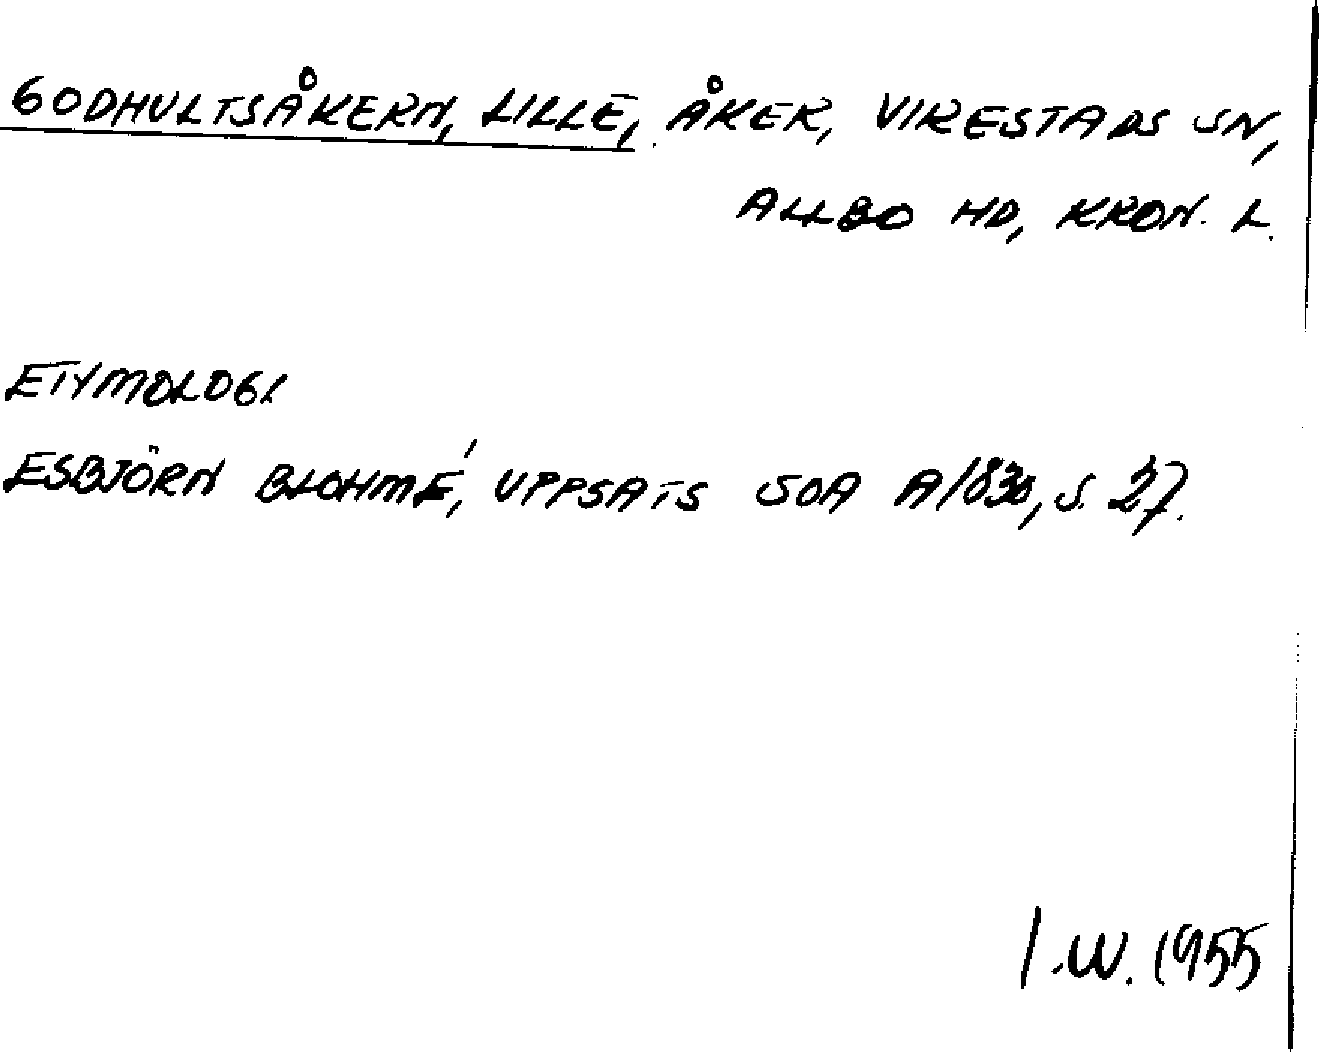 GODHULTSÅKERN, LILLE, ÅKER, VIRESTADS SN,
ALLBO HD, KRON. L.
ETYMOLOGI
ESBJÖRN BLOHMÉ, UPPSATS SOA A1830, S. 27.
I.W. 1955